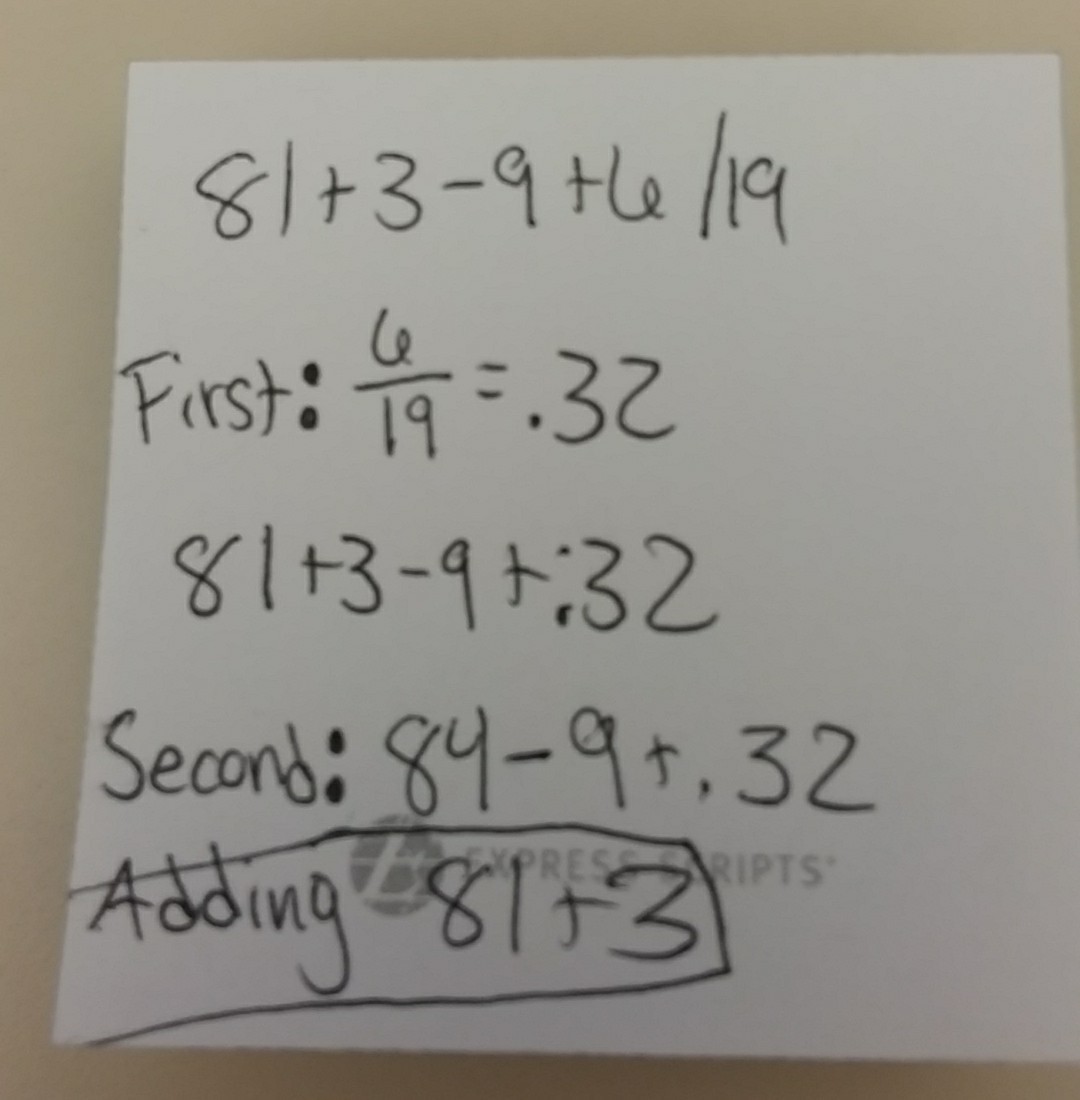 81+3-9+6/19
First: 6/19 = .32
81+3-9+.32
Second: 84-9+.32
EXPRESS SCRIPTS
Adding 81+3